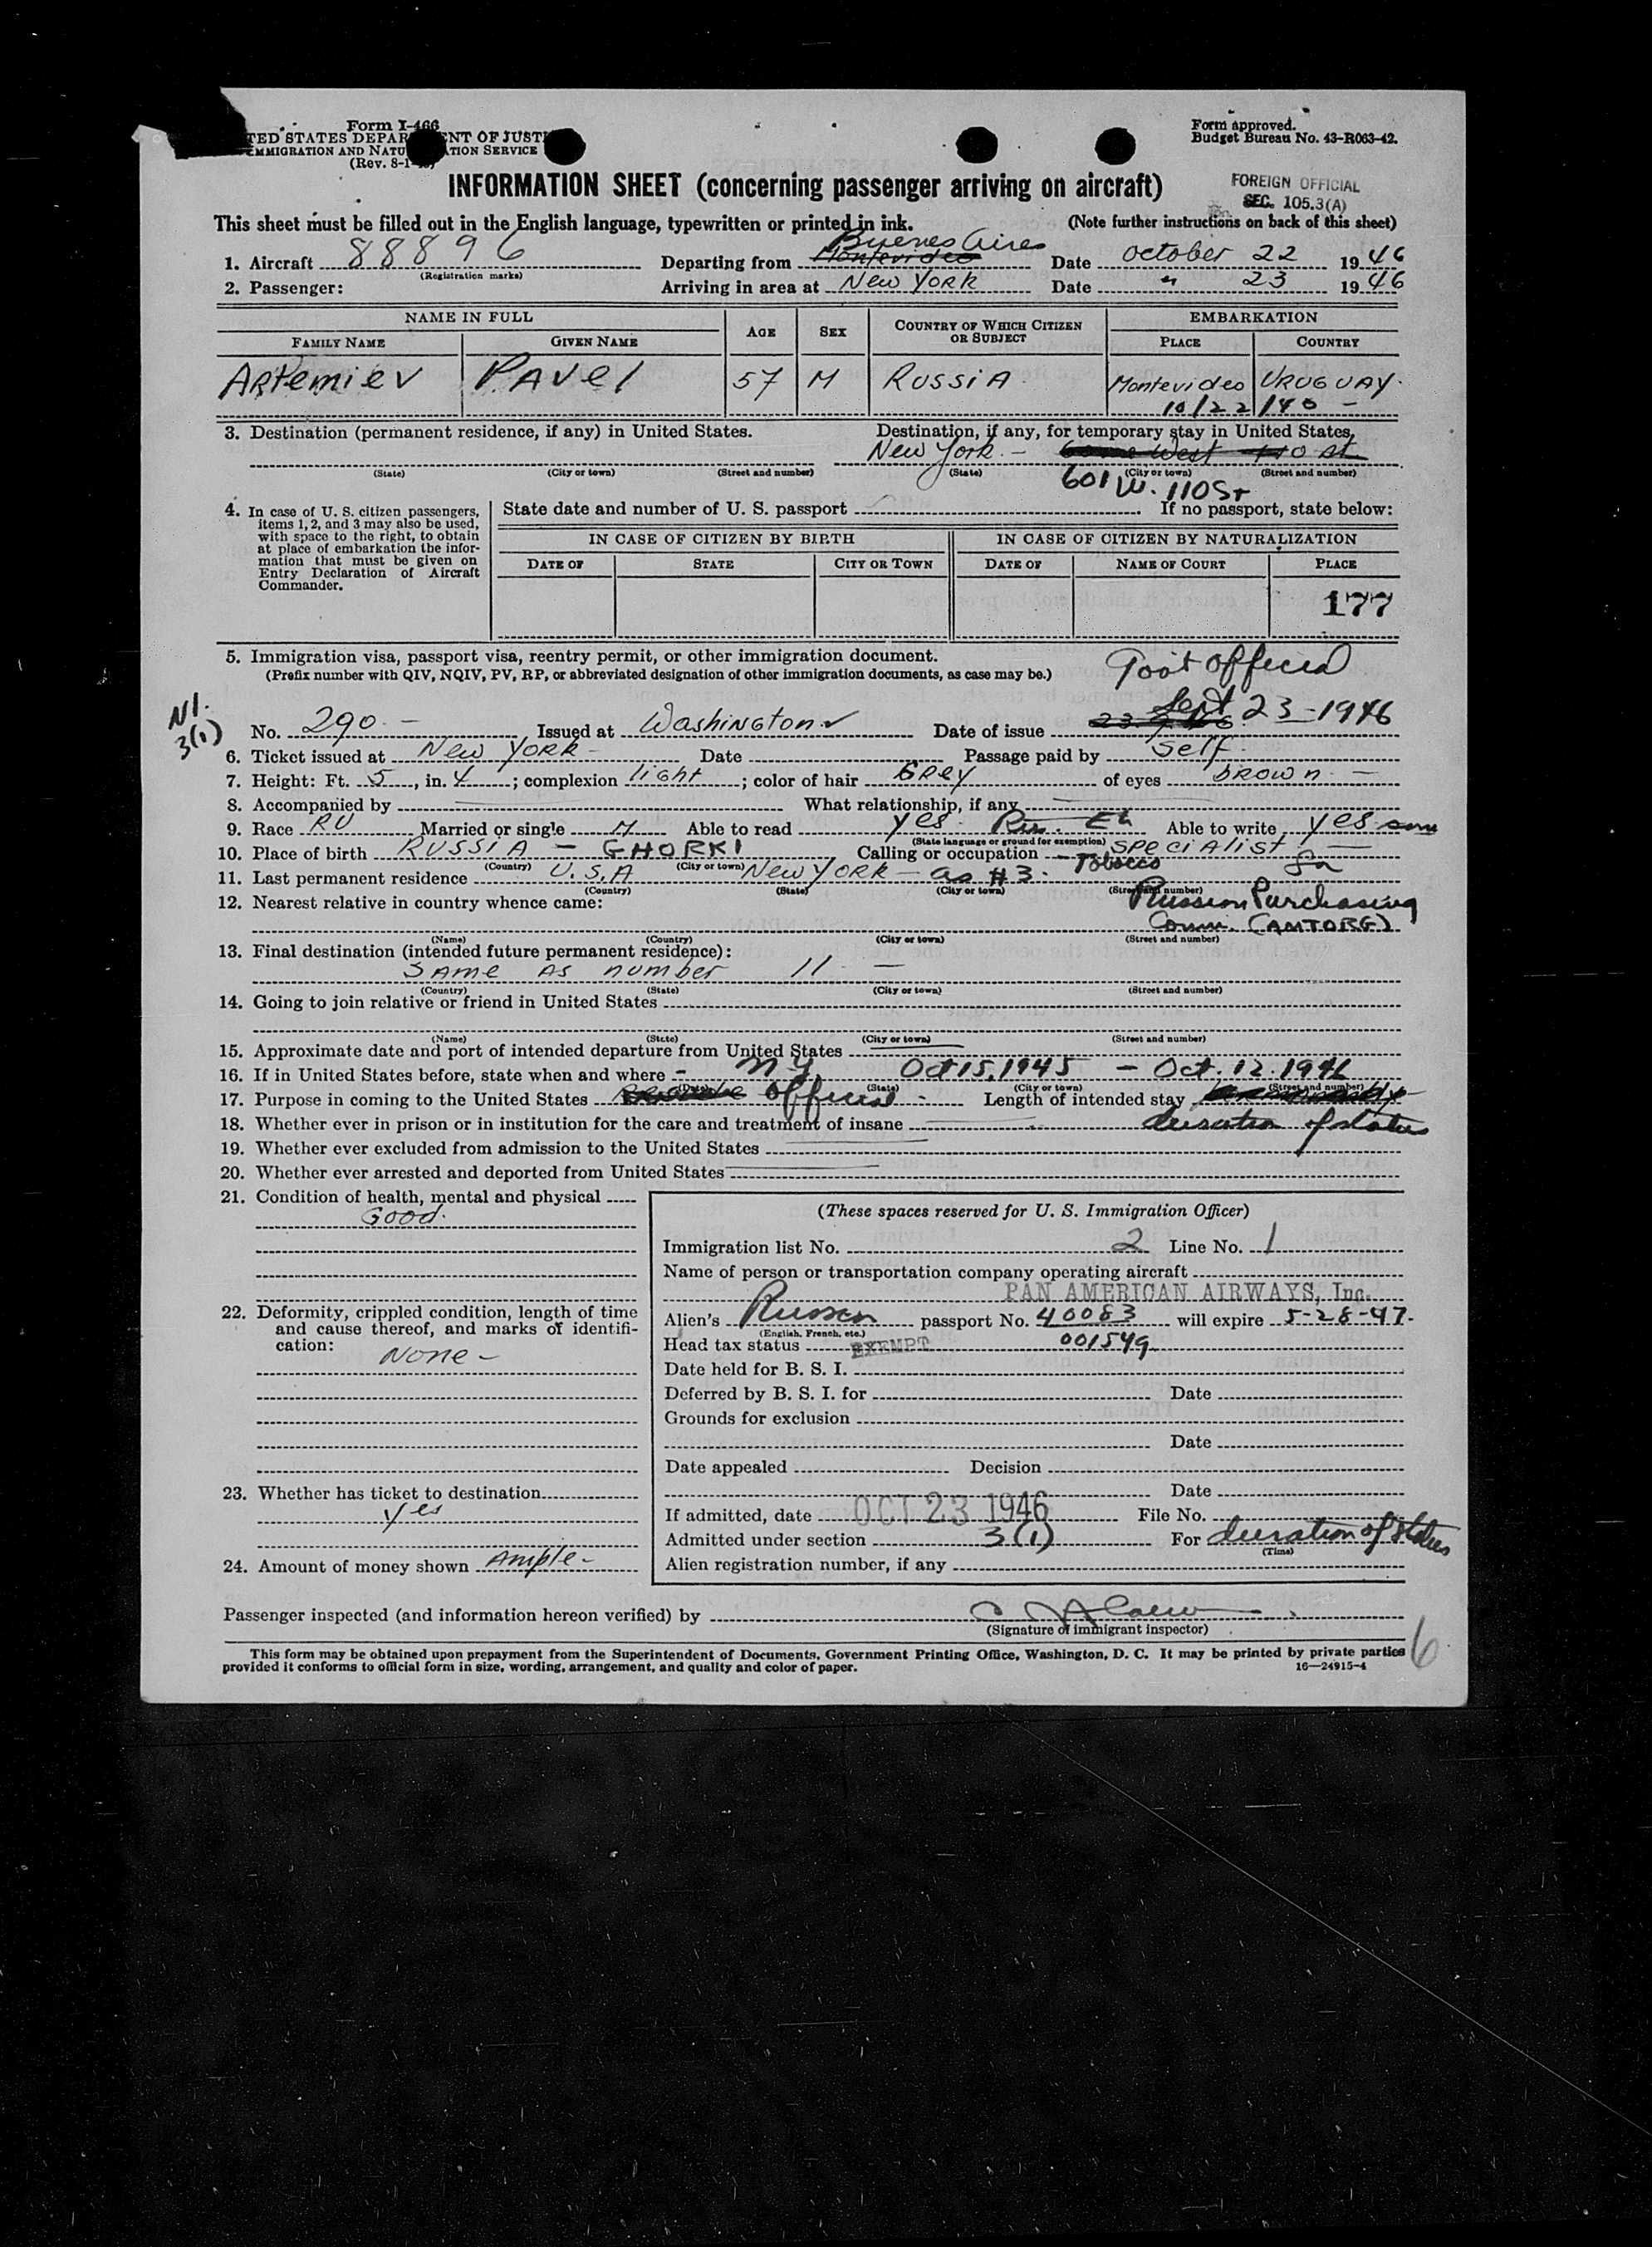 Form I-466
TED STATES DEPAR NT OF JUSTI
IMMIGRATION AND NATU TION SERVICE
(Rev. 8-1-
Form approved.
Budget Bureau No. 43-R063-42.
INFORMATION SHEET (concerning passenger arriving on aircraft)
FOREIGN OFFICIAL
SEC. 105.3(A)
This sheet must be filled out in the English language, typewritten or printed in ink. (Note further instructions on back of this sheet)
Buenos Aires
1. Aircraft 88896 Departing from Montevideo Date October 22 1946
(Registration marks)
2. Passenger: Arriving in area at New York Date " 23 1946
NAME IN FULL AGE SEX COUNTRY OF WHICH CITIZEN OR SUBJECT EMBARKATION
FAMILY NAME GIVEN NAME PLACE COUNTRY
Artemiev Pavel 57 M RUSSIA Montevideo URUGUAY
10/22/46 -
3. Destination (permanent residence, if any) in United States. Destination, if any, for temporary stay in United States,
New York - West 110 St
(State) (City or town) (Street and number) (State) (City or town) (Street and number)
601 W. 110 St
4. In case of U. S. citizen passengers, items 1, 2, and 3 may also be used, with space to the right, to obtain at place of embarkation the information that must be given on Entry Declaration of Aircraft Commander.
State date and number of U. S. passport If no passport, state below:
IN CASE OF CITIZEN BY BIRTH IN CASE OF CITIZEN BY NATURALIZATION
DATE OF STATE CITY OR TOWN DATE OF NAME OF COURT PLACE
177
5. Immigration visa, passport visa, reentry permit, or other immigration document.
(Prefix number with QIV, NQIV, PV, RP, or abbreviated designation of other immigration documents, as case may be.)
Gov't official
N1.
3(1)
No. 290 - Issued at Washington Date of issue Sept 23-1946
6. Ticket issued at New York - Date Passage paid by Self
7. Height: Ft. 5, in. 4; complexion light; color of hair Grey of eyes brown -
8. Accompanied by What relationship, if any
9. Race RU Married or single M Able to read yes Rus. Eh Able to write yes same
(State language or ground for exemption)
10. Place of birth RUSSIA - GHORKI Calling or occupation - specialist -
(Country) (City or town)
Tobacco for
11. Last permanent residence U.S.A New York - as #3.
(Country) (State) (City or town) (Street and number)
12. Nearest relative in country whence came: Russian Purchasing
Comm. (AMTORG)
(Name) (Country) (City or town) (Street and number)
13. Final destination (intended future permanent residence):
same as number 11 -
(Country) (State) (City or town) (Street and number)
14. Going to join relative or friend in United States
(Name) (State) (City or town) (Street and number)
15. Approximate date and port of intended departure from United States
16. If in United States before, state when and where - N.Y. Oct 15, 1945 - Oct. 12. 1946
(Date) (State) (City or town) (Street and number)
17. Purpose in coming to the United States Official - Length of intended stay
18. Whether ever in prison or in institution for the care and treatment of insane duration of status
19. Whether ever excluded from admission to the United States
20. Whether ever arrested and deported from United States
21. Condition of health, mental and physical
Good.
22. Deformity, crippled condition, length of time and cause thereof, and marks of identification:
None -
23. Whether has ticket to destination
yes
24. Amount of money shown Ample -
(These spaces reserved for U. S. Immigration Officer)
Immigration list No. 2 Line No. 1
Name of person or transportation company operating aircraft
PAN AMERICAN AIRWAYS, Inc.
Alien's Russian passport No. 40083 will expire 5-28-47.
(English, French, etc.)
Head tax status EXEMPT 001549
Date held for B. S. I.
Deferred by B. S. I. for Date
Grounds for exclusion
Date
Date appealed Decision
Date
If admitted, date OCT 23 1946 File No.
Admitted under section 3(1) For duration of status
(Time)
Alien registration number, if any
Passenger inspected (and information hereon verified) by
(Signature of immigrant inspector)
This form may be obtained upon prepayment from the Superintendent of Documents, Government Printing Office, Washington, D. C. It may be printed by private parties
provided it conforms to official form in size, wording, arrangement, and quality and color of paper. 16—24915-4
6